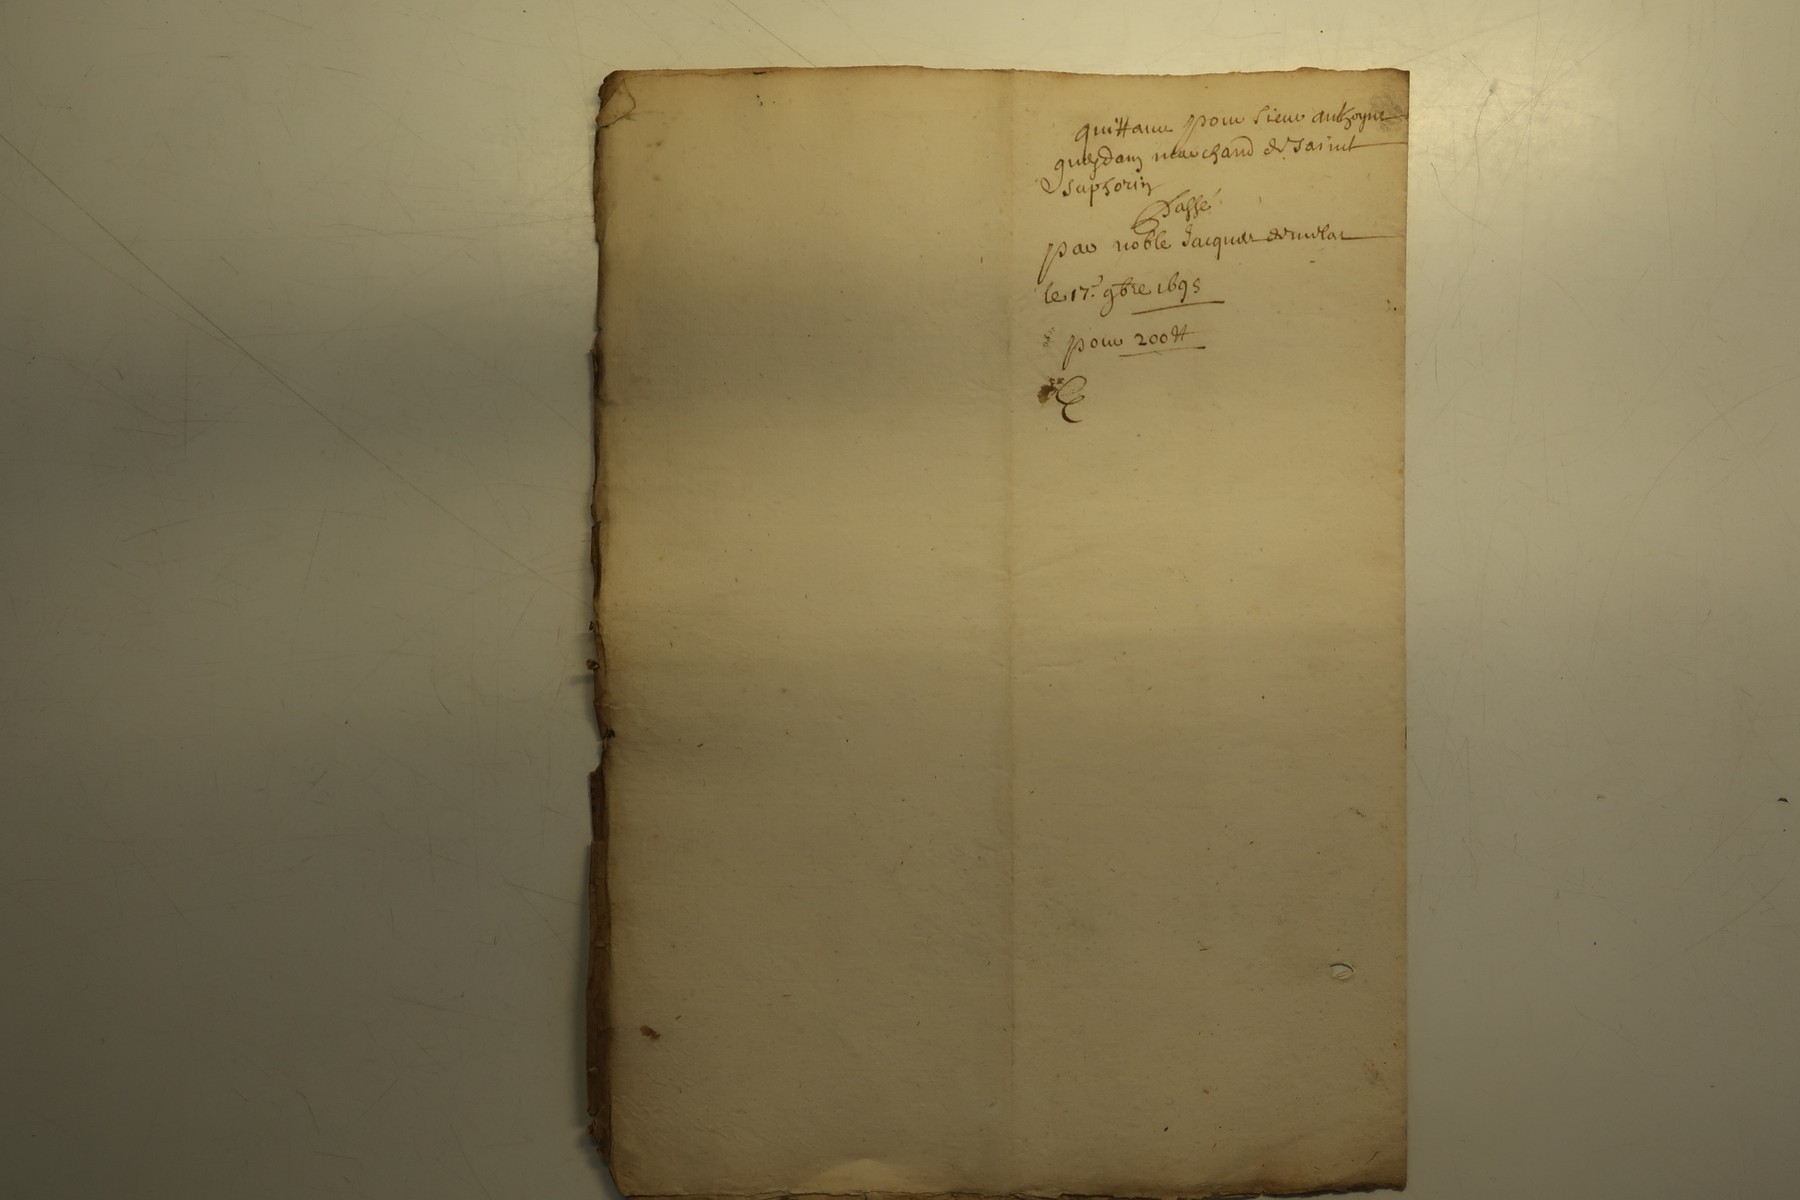 quittance pour sieur anthoyne
gueydan marchand de Saint
Saphorin
Passé
par noble Jacques
le 17e 9bre 1695
pour 200 ₶